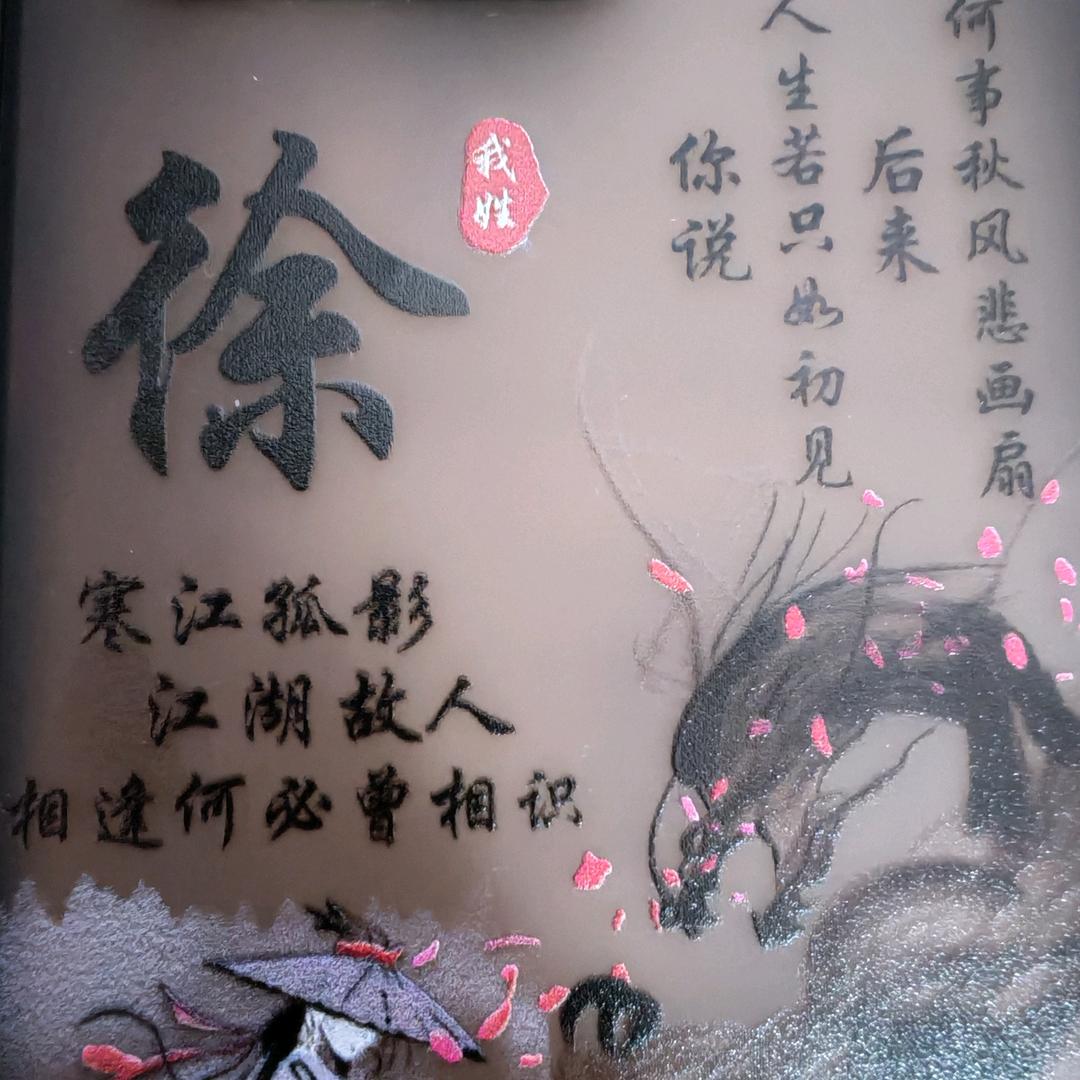 徐
我姓
寒江孤影
江湖故人
相逢何必曾相识
你说
人生若只如初见
后来
何事秋风悲画扇